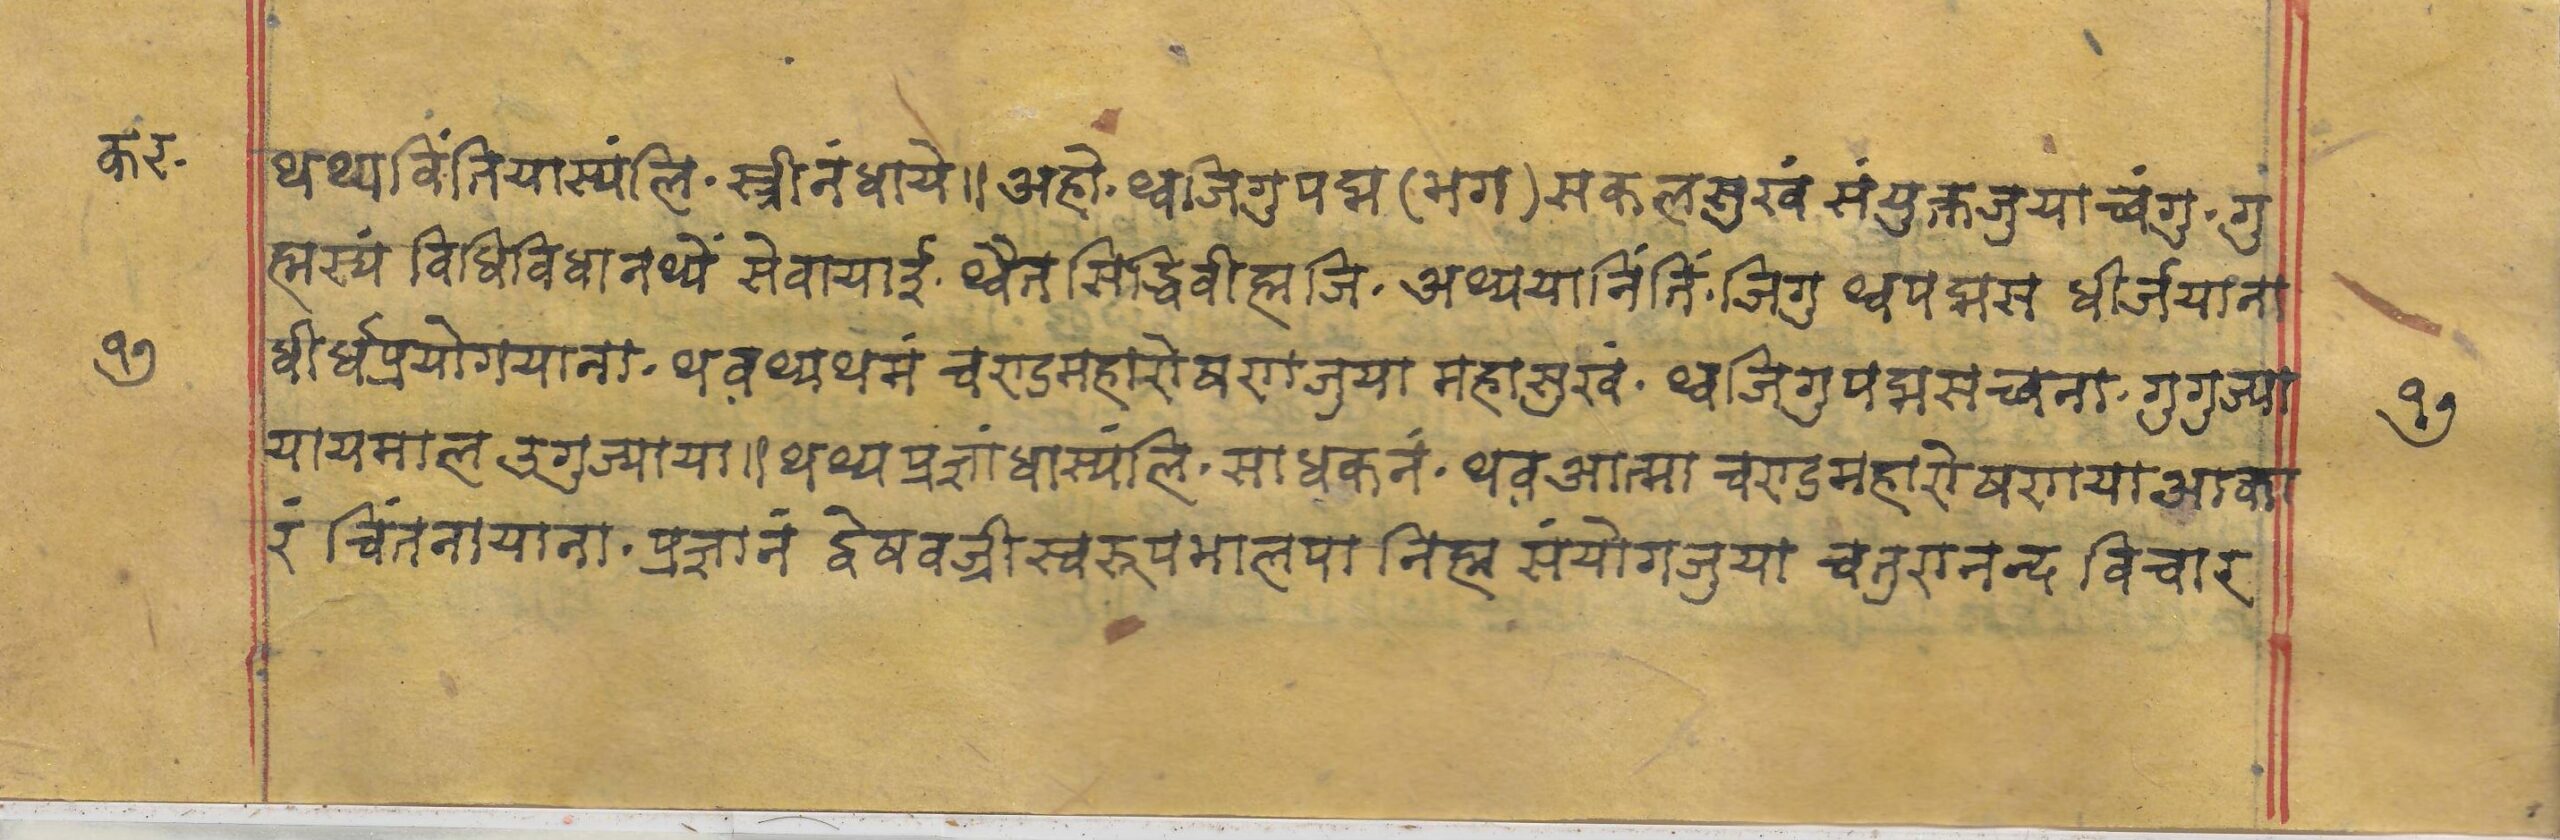 कर. थथ्यविंतियास्यंलि. स्त्रीनंधाये॥ अहो. थ्वजिगुपद्म (भग) सकलसुखं संयुक्तजुयाच्वंगु. गु
ह्मस्यं विधिविधानथ्यें सेवायाई. थ्वैत सिद्धिवीह्मजि. अथ्ययानिंतिं. जिगु थ्वपद्मस धीर्जयाना
१७ धीर्घप्रयोगयाना. थवथ्यथमं चण्डमहारोषणजुया महासुखं. थ्वजिगुपद्मसच्वना. गुगुज्या १७
यायमाल उगुज्याया॥ थथ्यप्रज्ञांधास्यंलि. साधकनं. थवआत्मा चण्डमहारोषणयाआका
रं चिंतनायाना. प्रज्ञानं द्वेषवज्रीस्वरूपभालपा निह्म संयोगजुया चतुरानन्द विचार